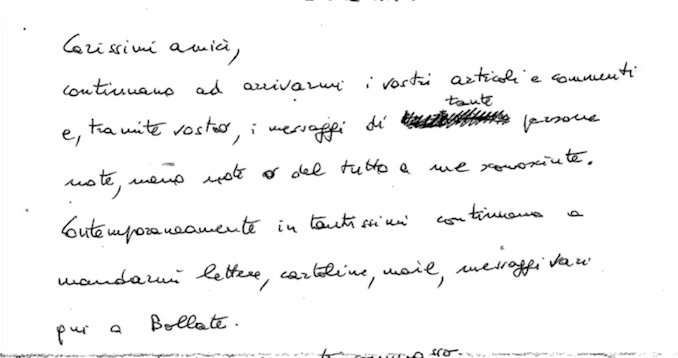 Carissimi amici,
continuano ad arrivarmi i vostri articoli e commenti
e, tramite vostro, i messaggi di tante persone
note, meno note o del tutto a me sconosciute.
Contemporaneamente in tantissimi continuano a
mandarmi lettere, cartoline, mail, messaggi vari
qui a Bollate.